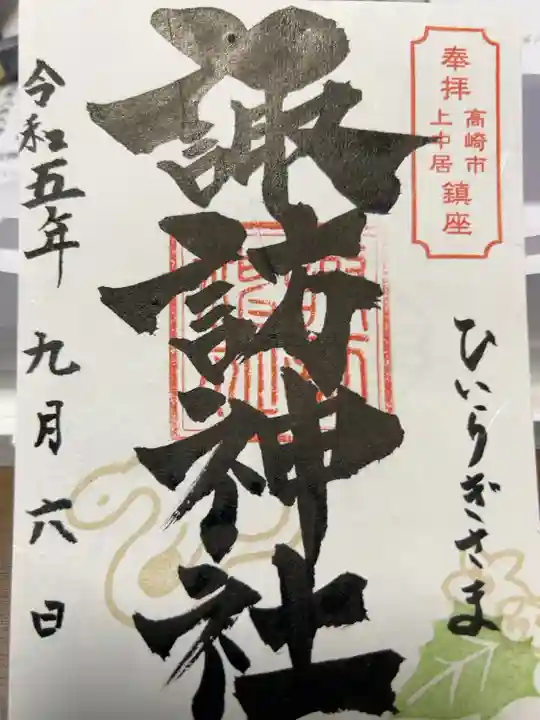 奉拝
高崎市
上中居
鎮座
ひいらぎさま
諏訪神社
令和五年 九月 六日